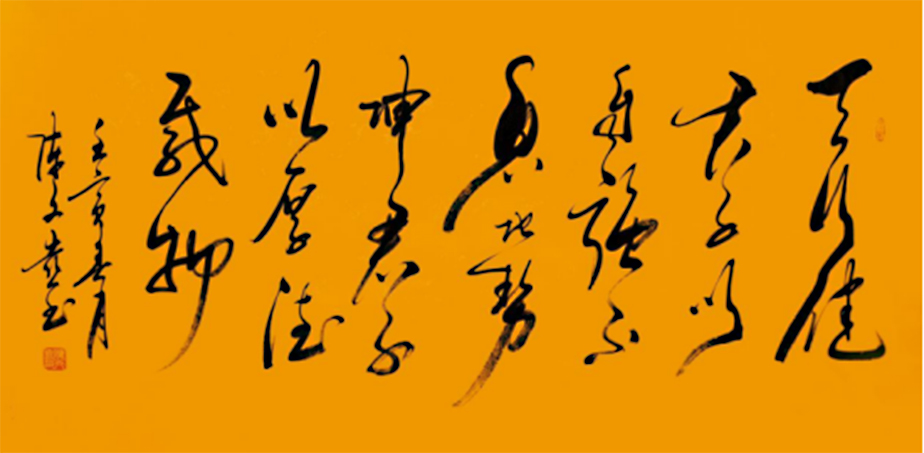 天行健
君子以
自强不
息地势
坤君子
以厚德
载物
壬寅春月
陈文